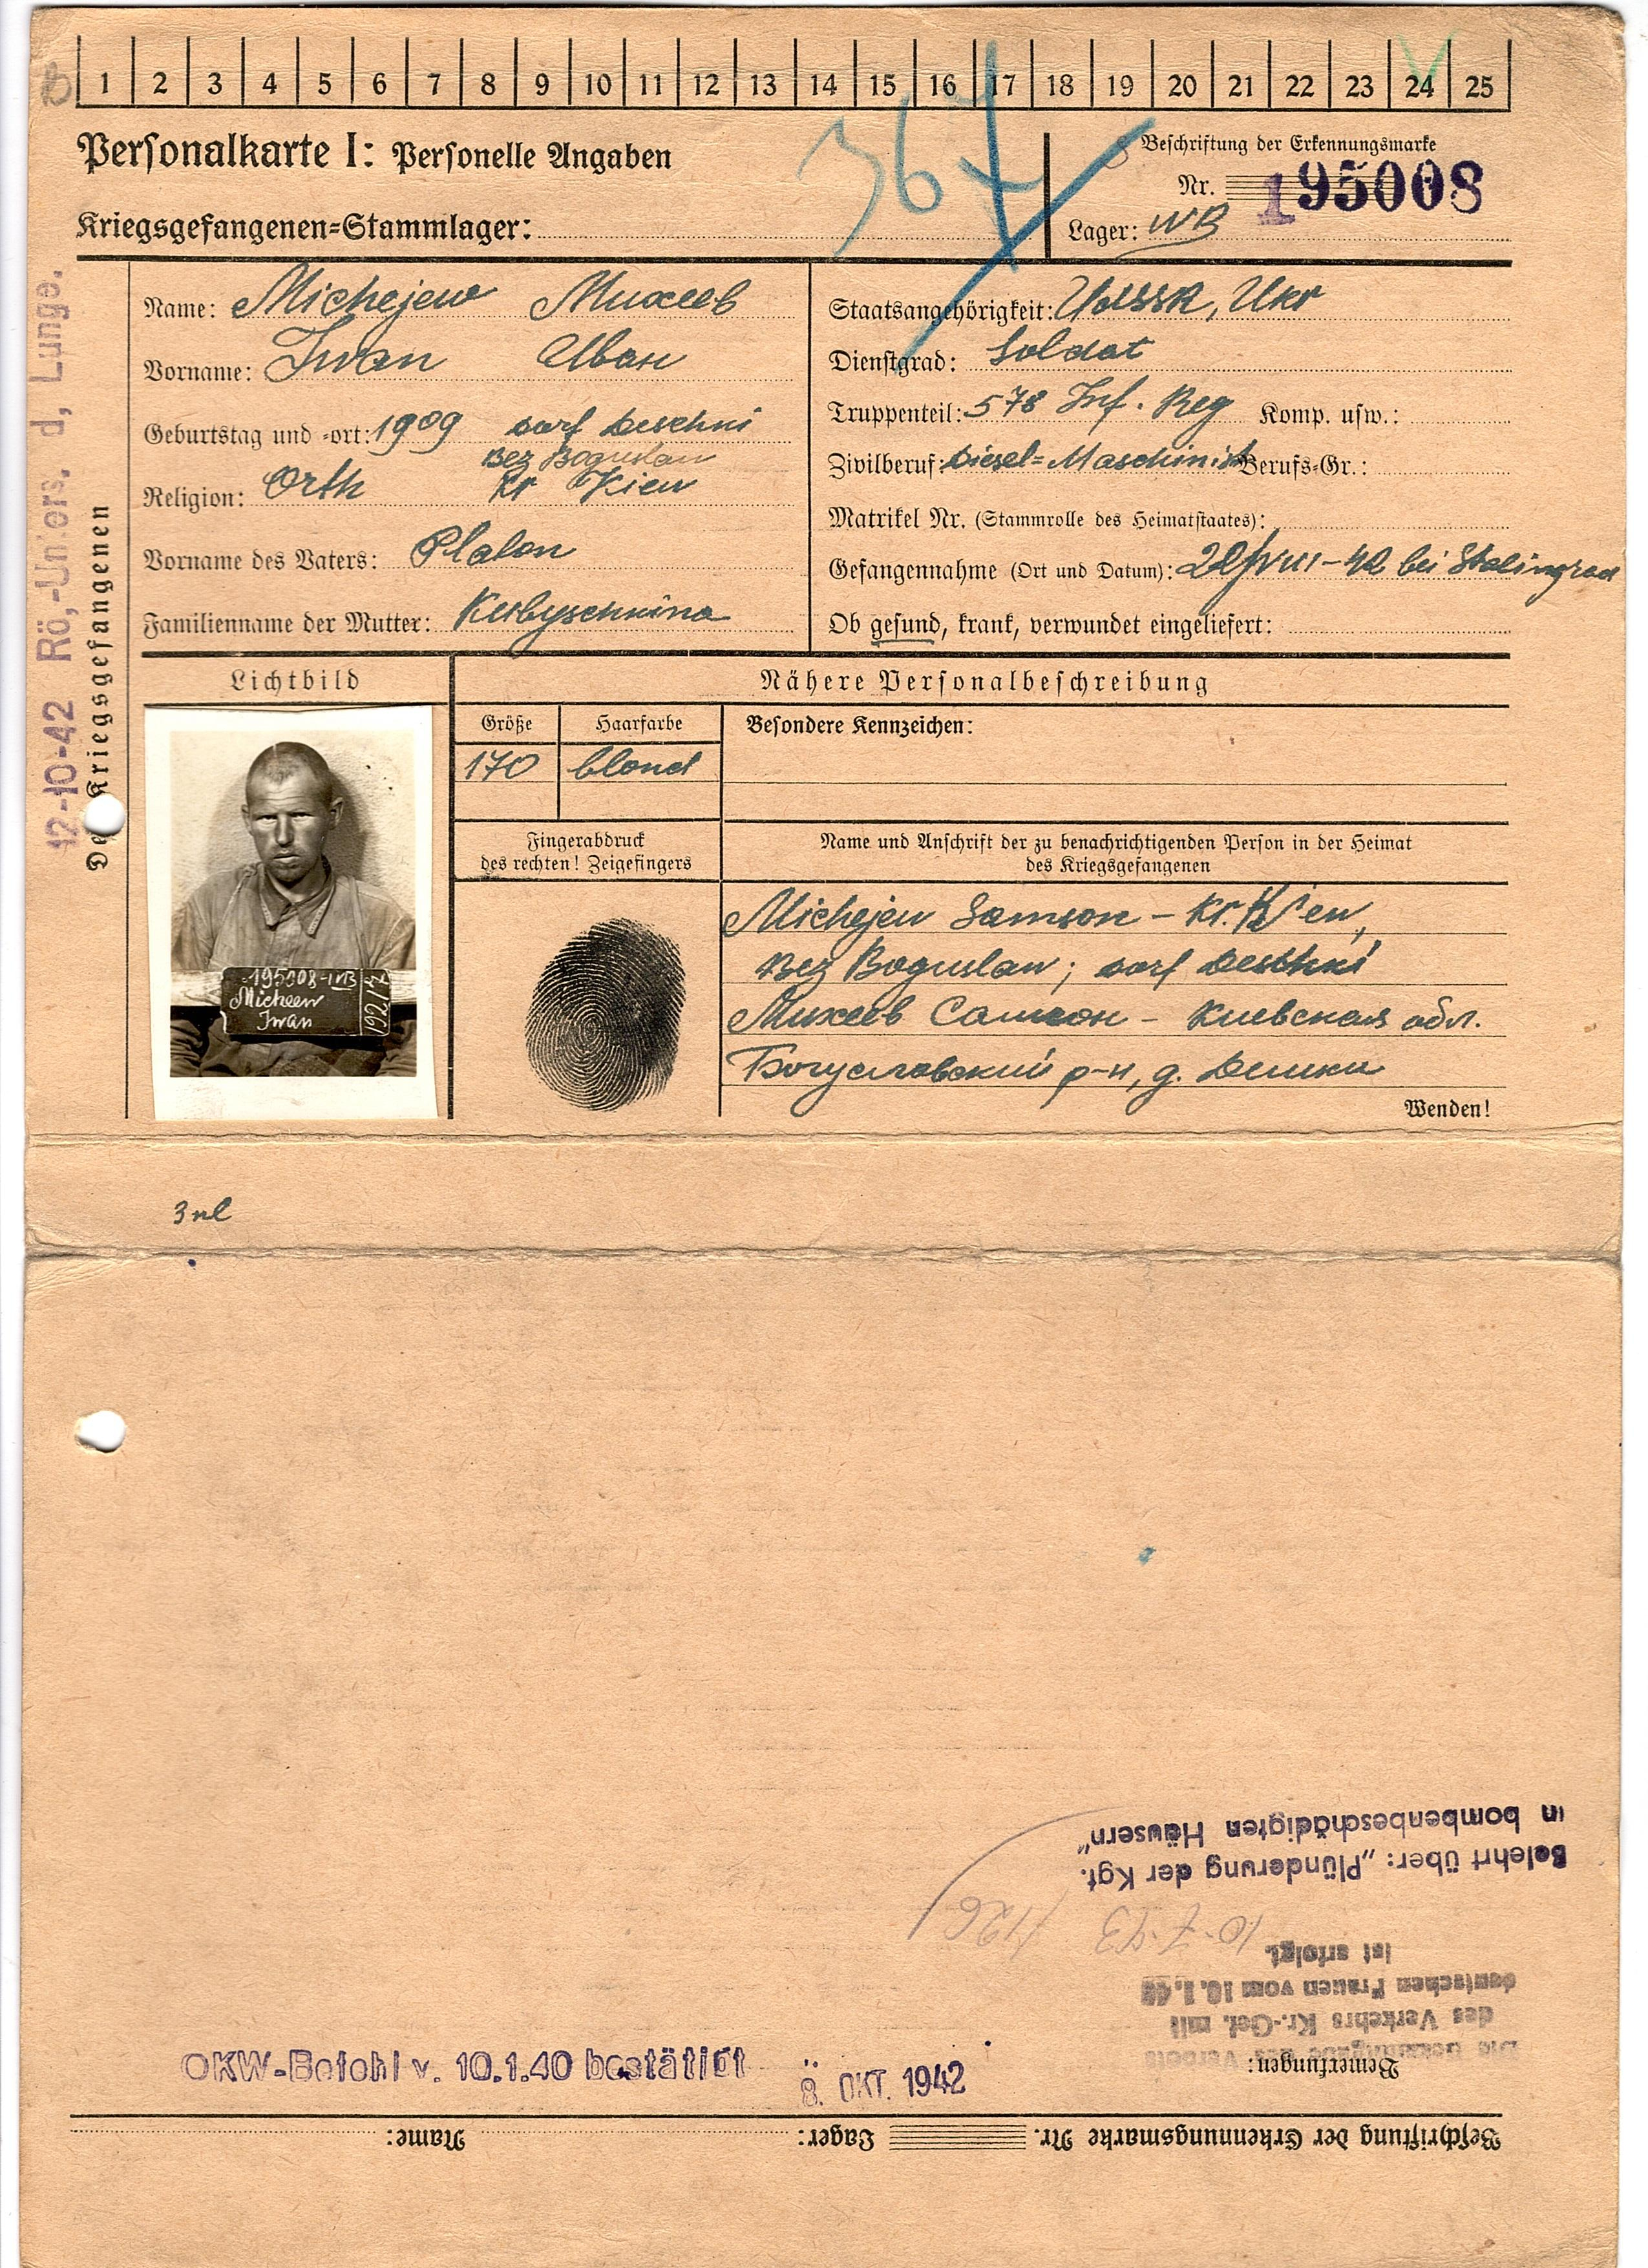 1 2 3 4 5 6 7 8 9 10 11 12 13 14 15 16 17 18 19 20 21 22 23 24 25
Personalkarte I: Personelle Angaben
367
Beschriftung der Erkennungsmarke
Nr. 195008
Kriegsgefangenen=Stammlager:
Lager: IVB
12-10-42 Rö,-Unters, d, Lunge.
Des Kriegsgefangenen
Name: Michejew Михеев
Vorname: Iwan Иван
Geburtstag und -ort: 1909 Dorf Deschni
Bez Boguslaw
Religion: Orth Kr Kiew
Vorname des Vaters: Platon
Familienname der Mutter:
Staatsangehörigkeit: UdSSR, Ukr
Dienstgrad: Soldat
Truppenteil: 578 Inf. Reg Komp. usw.:
Zivilberuf: Diesel=Maschinist Berufs-Gr.:
Matrikel Nr. (Stammrolle des Heimatstaates):
Gefangennahme (Ort und Datum): VIII-42 bei Stalingrad
Ob gesund, krank, verwundet eingeliefert:
Lichtbild
Nähere Personalbeschreibung
Größe Haarfarbe Besondere Kennzeichen:
170 blond
Fingerabdruck
des rechten! Zeigefingers
Name und Anschrift der zu benachrichtigenden Person in der Heimat
des Kriegsgefangenen
Michejew Samson - Kr. Kiew,
Bez Boguslaw; Dorf Deschki
Михеев Самсон - Киевская обл.
Богуславский р-н, д. Дешки
Wenden!
195008-IVB
Micheew
Iwan
1921/7
OKW-Befehl v. 10.1.40 bestätigt
8. OKT. 1942
Beschriftung der Erkennungsmarke Nr. Lager: Name:
Bemerkungen:
Die Bekanntgabe des Verbots
des Verkehrs Kr.-Gef. mit
deutschen Frauen vom 10.1.40
ist erfolgt.
10.7.43
Belehrt über: „Plünderung der Kgf.
in bombenbeschädigten Häusern"